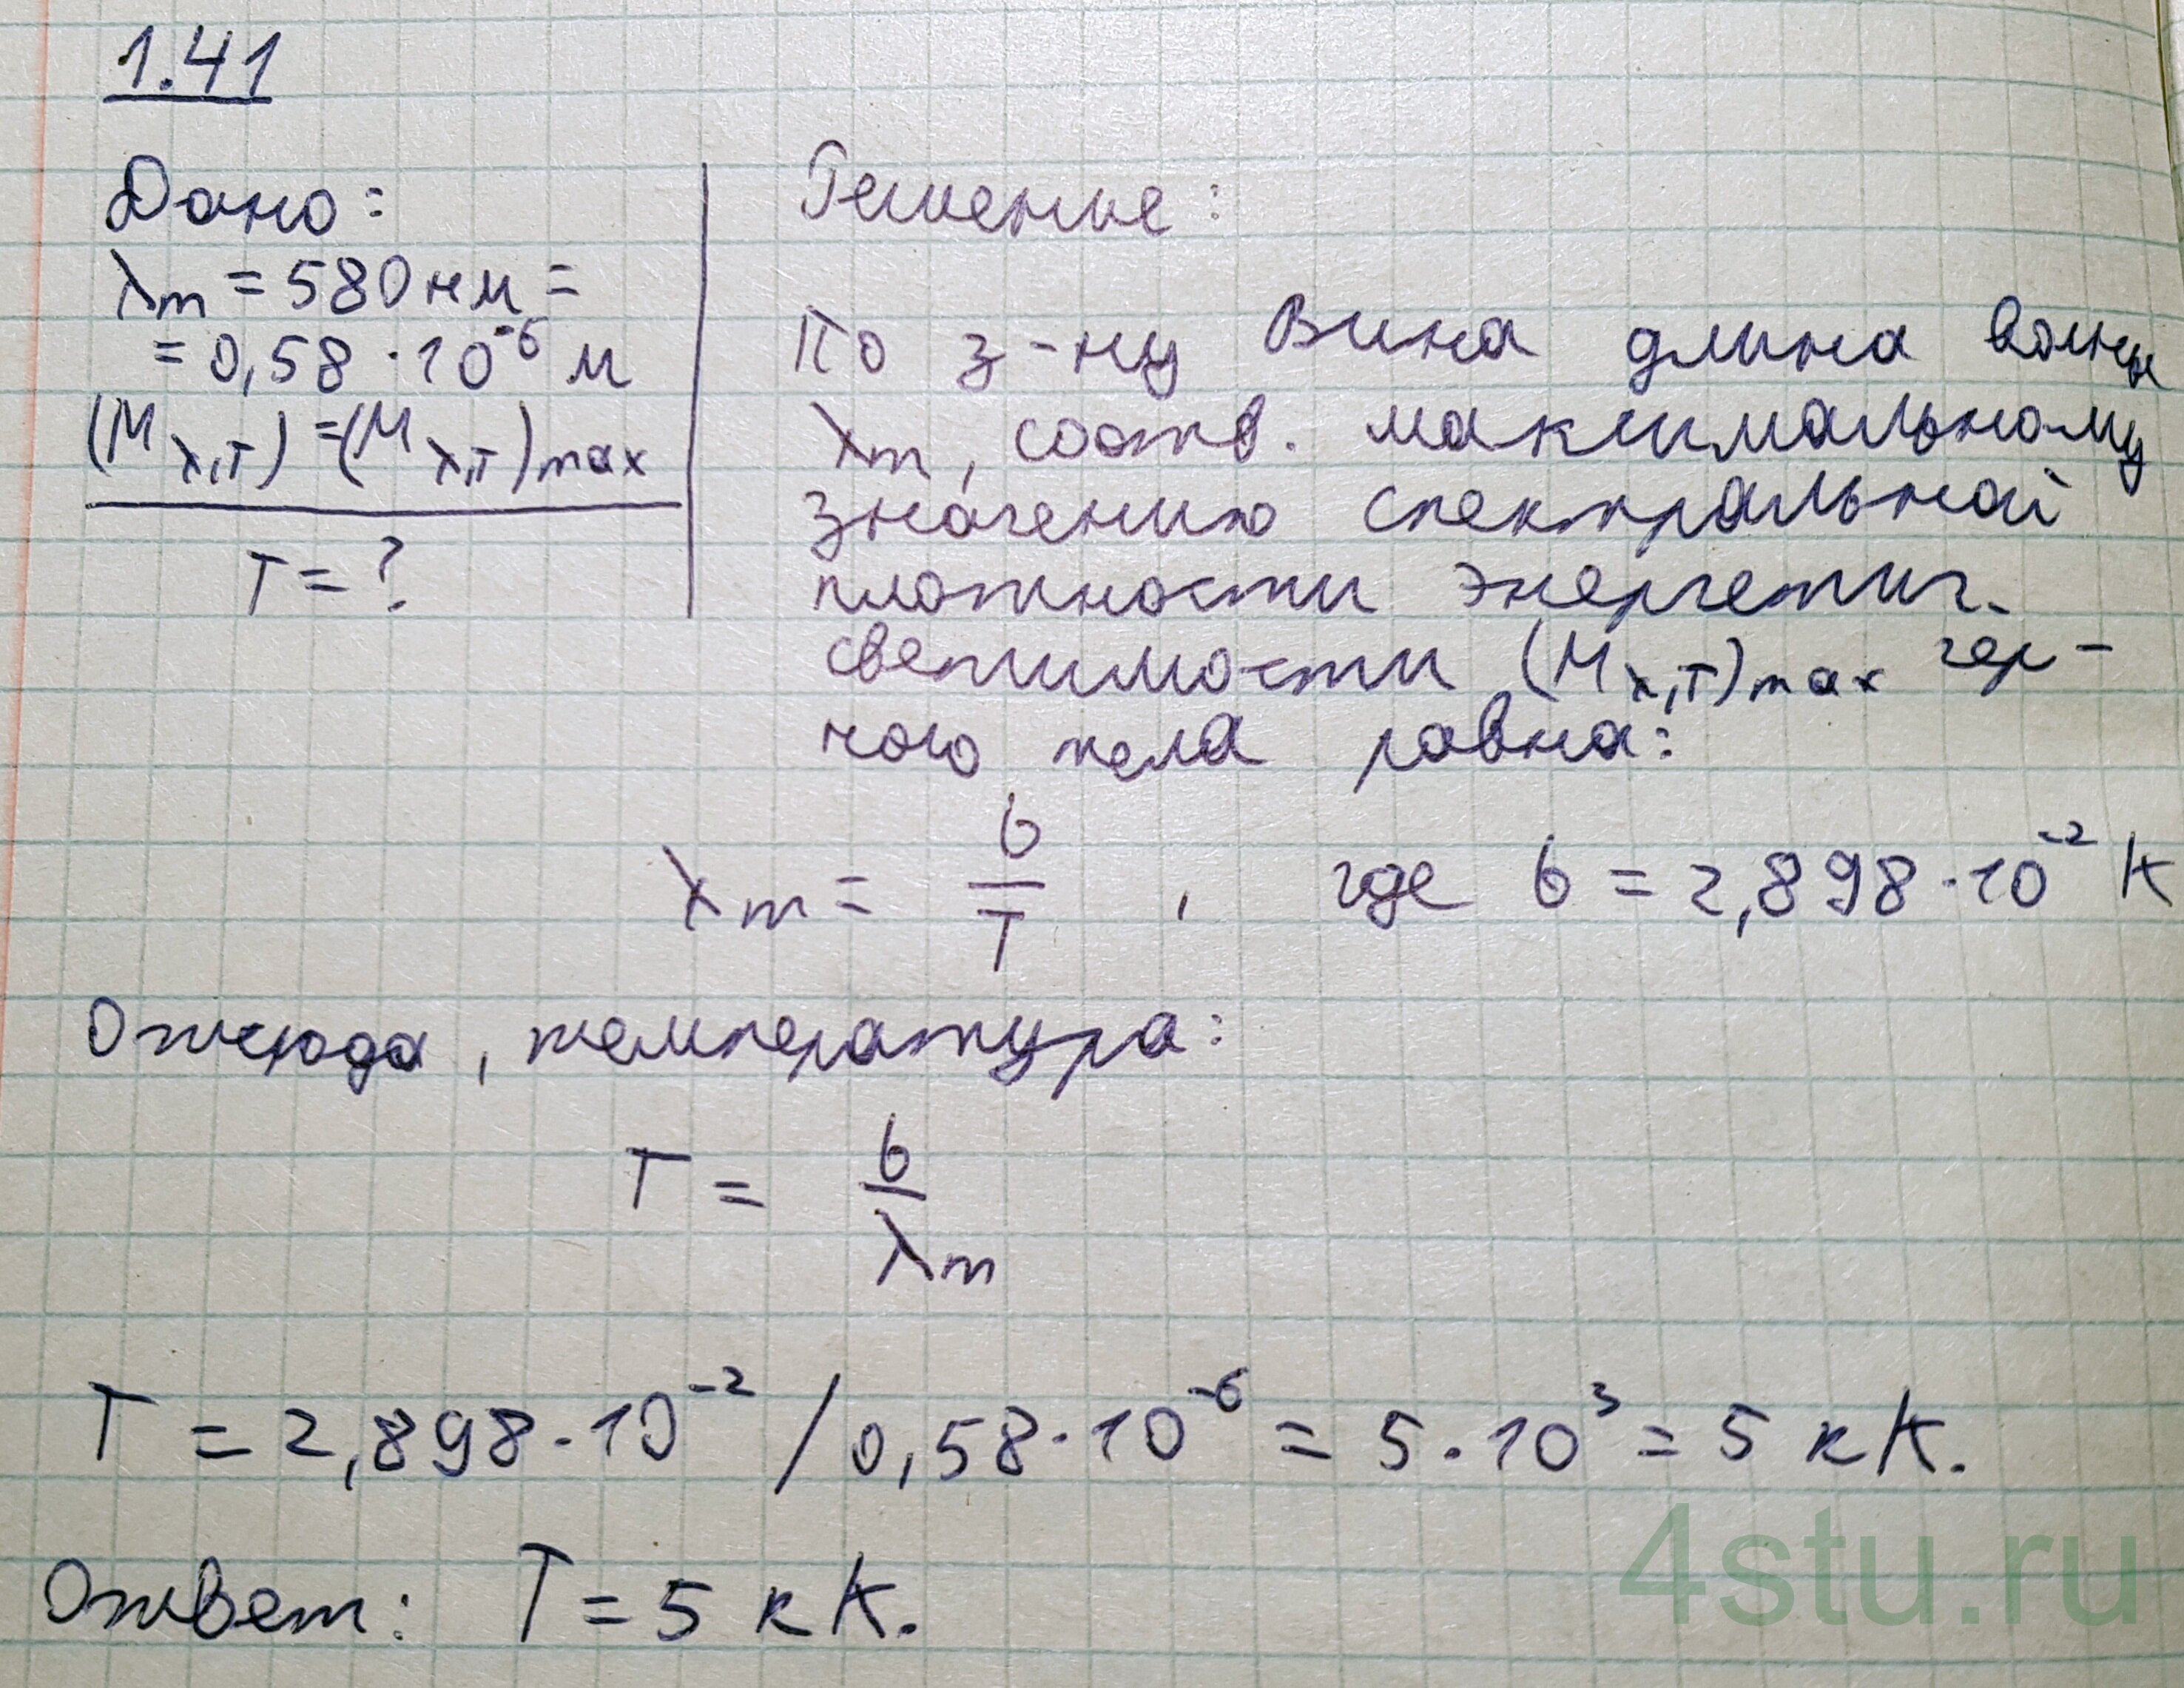 1.41
Дано:
λm = 580 нм =
= 0,58 · 10⁻⁶ м
(Mλ,T) = (Mλ,T)max
T = ?
Решение:
По з-ну Вина длина волны
λm, соотв. максимальному
значению спектральной
плотности энергетич.
светимости (Mλ,T)max чер-
ного тела равна:
λm = b/T , где b = 2,898 · 10⁻² К
Отсюда, температура:
T = b/λm
T = 2,898 · 10⁻² / 0,58 · 10⁻⁶ = 5 · 10³ = 5 кК.
Ответ: T = 5 кК.
4stu.ru